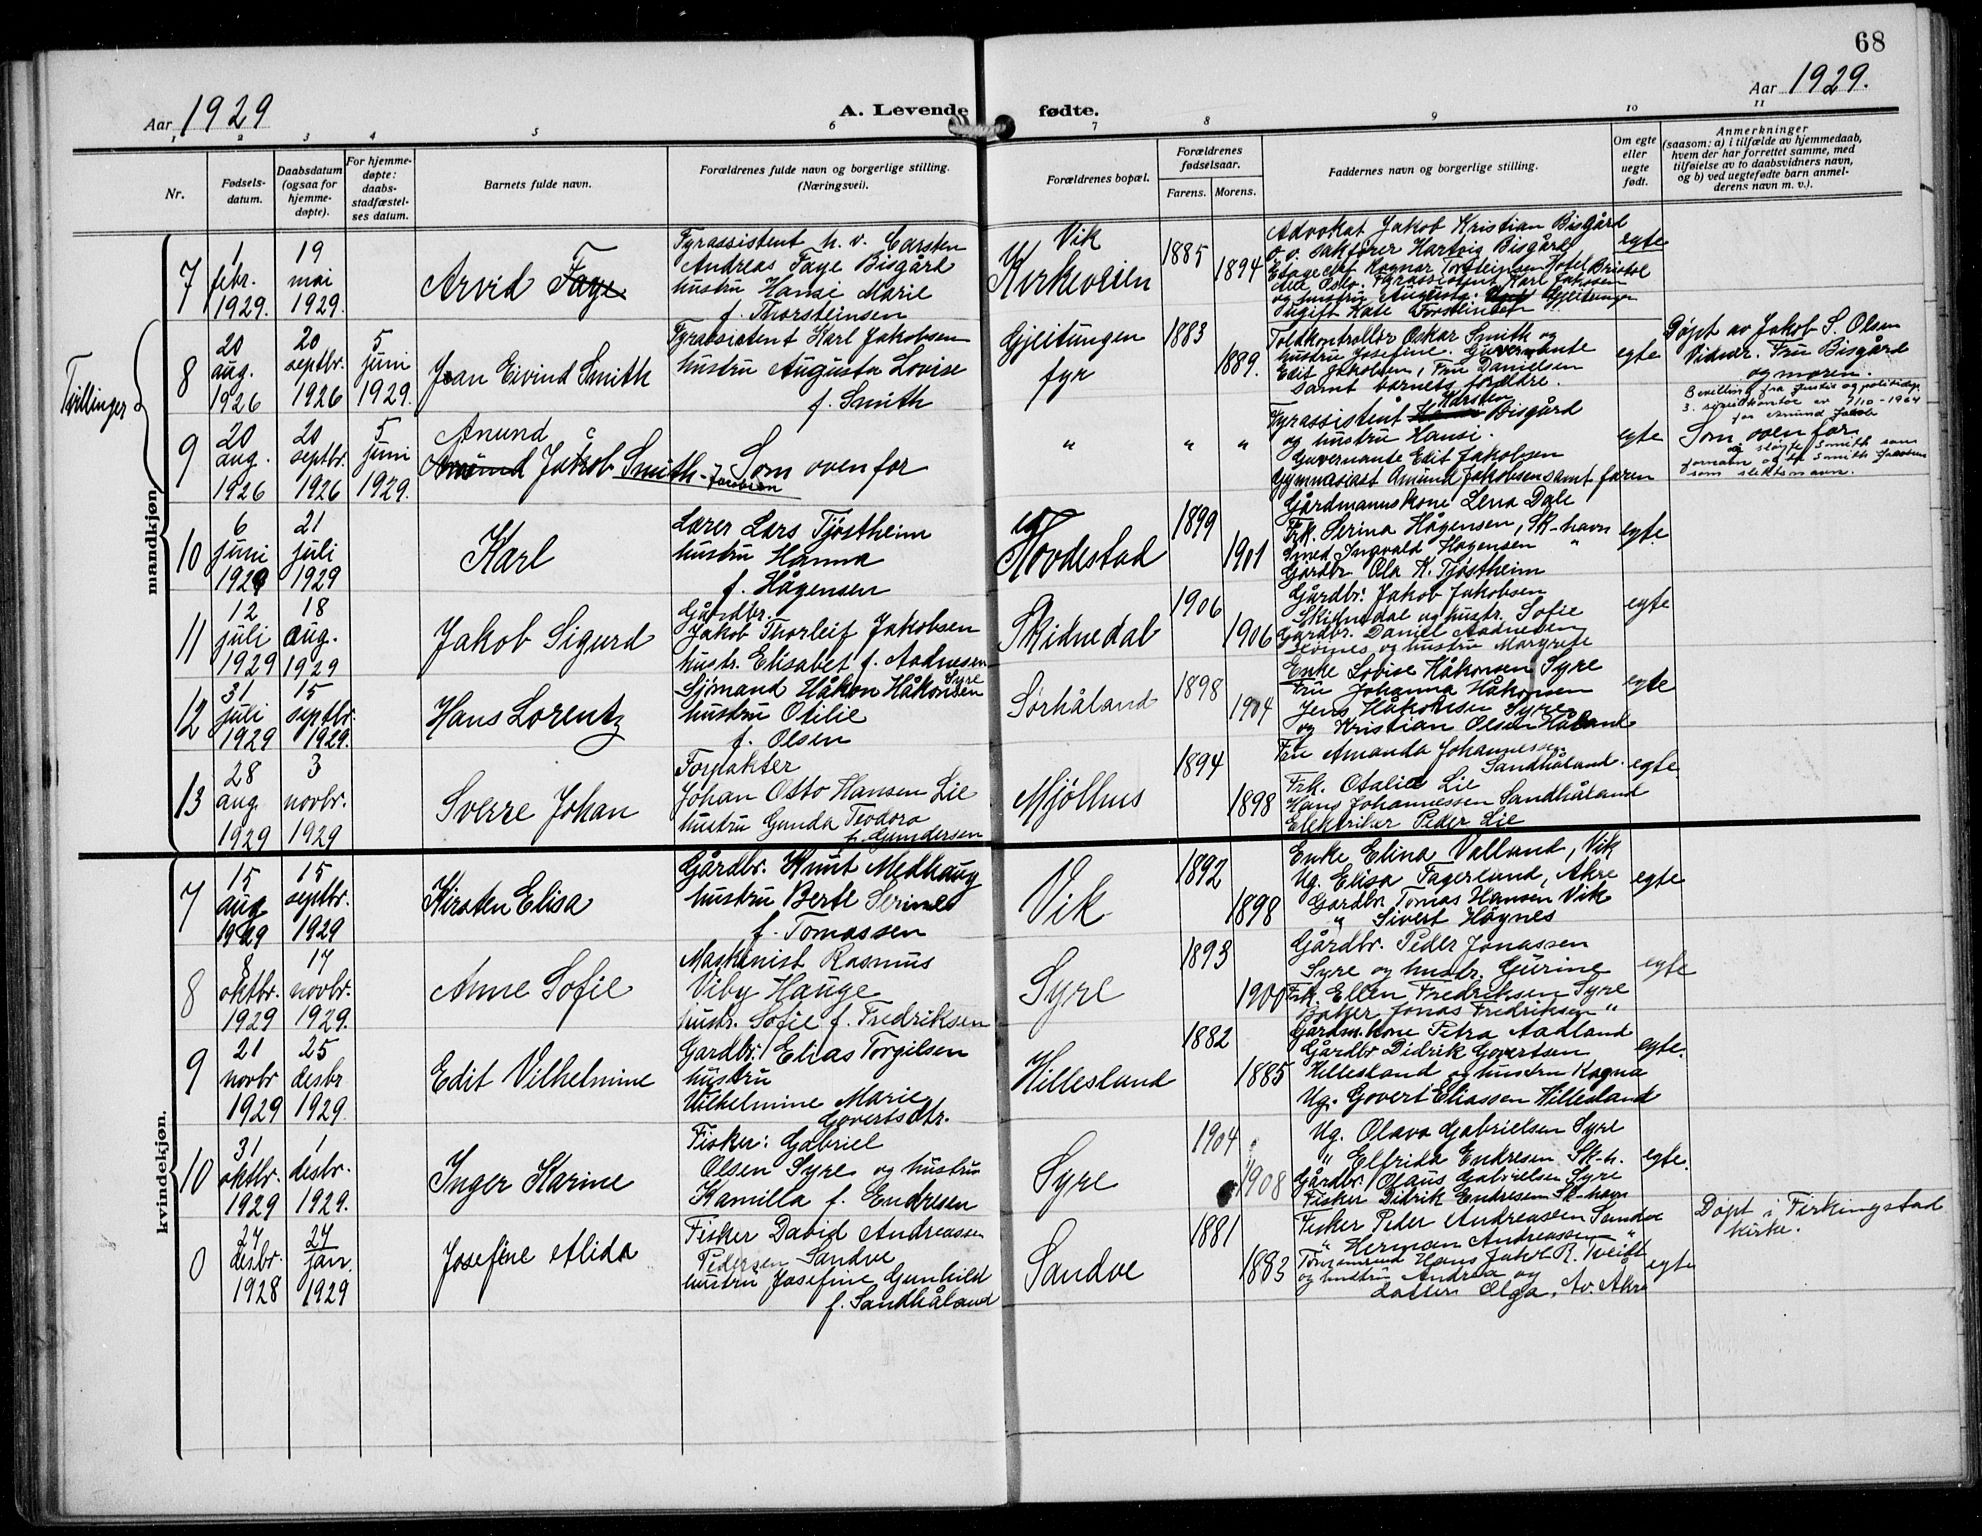 68
Aar 1929
A. Levende fødte.
Aar 1929.
1 2 3 4 5 6 7 8 9 10 11
Nr.
Fødsels-
datum.
Daabsdatum
(ogsaa for
hjemme-
døpte).
For hjemme-
døpte:
daabs-
stadfæstel-
ses datum.
Barnets fulde navn.
Forældrenes fulde navn og borgerlige stilling.
(Næringsvei).
Forældrenes bopæl.
Forældrenes
fødselsaar.
Farens. Morens.
Faddernes navn og borgerlige stilling.
Om egte
eller
uegte
født.
Anmerkninger
(saasom: a) i tilfælde av hjemmedaab,
hvem der har forrettet samme, med
tilføielse av to daabsvidners navn,
og b) ved uegtefødte barn anmel-
derens navn m. v.).
mandkjøn
7
1
febr.
1929.
19
mai
1929.
Arvid Faye
Fyrassistent h. v. Carsten
Andreas Faye Bisgård
hustru Hansi Marie
f. Thorsteinsen
Vik
Kirkeveien
1885
1894
Advokat Jakob Kristian Bisgård
o. v. sakfører Hartvig Bisgård
Etagechef Ragnar Torsteinsen Hotel Bristol
Oslo. Fyrassistent Karl Jakobsen
og hustru Augusta. Gjeitungen
Ugift Kate Torsteinsen
egte
Tvillinger
8
20
aug.
1926
20
septbr.
1926
5
juni
1929.
Jean Eivind Smith
Fyrassistent Karl Jakobsen
hustru Augusta Lovise
f. Smith
Gjeitungen
fyr
1883
1889.
Toldkontrollør Oskar Smith og
hustru Josefine. Guvernante
Edit Jakobsen, Fru Danielsen
samt barnets forældre.
egte
Døpt av Jakob S. Olsen
Vidner. Fru Bisgård
og moren.
9
20
aug.
1926
20
septbr.
1926
5
juni
1929.
Anund c
Amund Jakob Smith - Jacobsen
Som ovenfor
" " "
Fyrassistent Karsten Bisgård
og hustru Hansi.
Guvernante Edit Jakobsen
Gymnasiast Amund Jakobsen samt faren
egte
Bevilling fra justis og politidep.
3. sivilkontor av 7/10-1964
for Anund Jacob
Som ovenfor
og sløyfe Smith som
fornavn og ta Smith Jacobsen
som slektsnavn.
10
6
juni
1929
21
juli
1929
Karl
Lærer Lars Tjøstheim
hustru Hanna
f. Hågensen
Hovdestad
1899
1901
Gårdmannskone Lena Dale
Frk. Serina Hågensen, Sk-havn
Smed Ingvald Hagensen "
Gårdbr. Ola K. Tjøstheim
egte.
11
12
juli
1929
18
aug.
1929
Jakob Sigurd
Gårdbr.
Jakob Thorleif Jakobsen
hustr. Elisabet f. Aadnesen
Skidnedal
1906
1906
Gårdbr. Jakob Jakobsen
Skidnedal og hustr. Sofie
Gårdbr. Daniel Aadnesen
og hustru Margrete
egte
12
31
juli
1929
15
septbr.
1929.
Hans Lorentz
Sjømand Håkon Håkonsen Syre
hustru Otilie
f. Olsen
Sørhåland
1898
1904
Enke Lovise Håkonsen Syre
Fru Johanna Håkonsen
Jens Håkonsen Syre
og Kristian Olsen Håland
egte
13
28
aug.
1929
3
novbr.
1929
Sverre Johan
Forpakter
Johan Otto Hansen Lie
hustru Gunda Teodora
f. Gundersen
Mjølhus
1894
1898
Fru Amanda Johannessen
Sandhåland.
Frk. Otalie Lie
Hans Johannessen Sandhåland
Elektriker Peder Lie
egte
kvindekjøn.
7
15
aug
1929
15
septbr.
1929
Kirsten Elisa
Gårdbr. Knut Medhaug
hustru Berte Serine
f. Tomassen
Vik
1892
1898
Enke Elina Valland, Vik
Ug. Elisa Fagerland, Akre
Gårdbr. Tomas Hansen Vik
" Sivert Høynes
egte
8
8
oktbr.
1929
17
novbr.
1929.
Anne Sofie
Maskinist Rasmus
Viby Hauge
hustr. Sofie f. Fredriksen
Syre
1893
1900
Gårdbr. Peder Jonassen
Syre og hustr. Gurine
Frk. Ellen Fredriksen Syre
Baker Jonas Fredriksen "
egte
9
21
novbr
1929
25
desbr
1929.
Edit Vilhelmine
Gardbr. Elias Torgilsen
hustru
Vilhelmine Marie
Govertsdtr.
Hillesland
1882
1885
Gårdm.kone Petra Aadland
Gårdbr Didrik Govertsen
Hillesland og hustru Ragna
Ug. Govert Eliassen Hillesland
egte.
10
31
oktbr.
1929
1
desbr.
1929.
Inger Karine
Fisker: Gabriel
Olsen Syre og hustru
Kamilla f. Endresen
Syre
1904
1908
Ug. Olava Gabrielsen Syre
" Elfrida Endresen Sk-h.
Gårdbr. Olaus Gabrielsen Syre
Fisker Didrik Endresen Sk-havn
egte.
0
27
desbr.
1928
27
jan.
1929
Josefine Alida
Fisker David Andreassen
Pedersen Sandve
hustru Josefine Gunhild
f. Sandhåland
Sandve
1881
1883
Fisker Peder Andreassen Sandve
" Herman Andreassen "
Hans Jakob R. Tveit
og hustru Andrea og
datter Olga, Av. Akre
egte
Døpt i Ferkingstad
kirke.